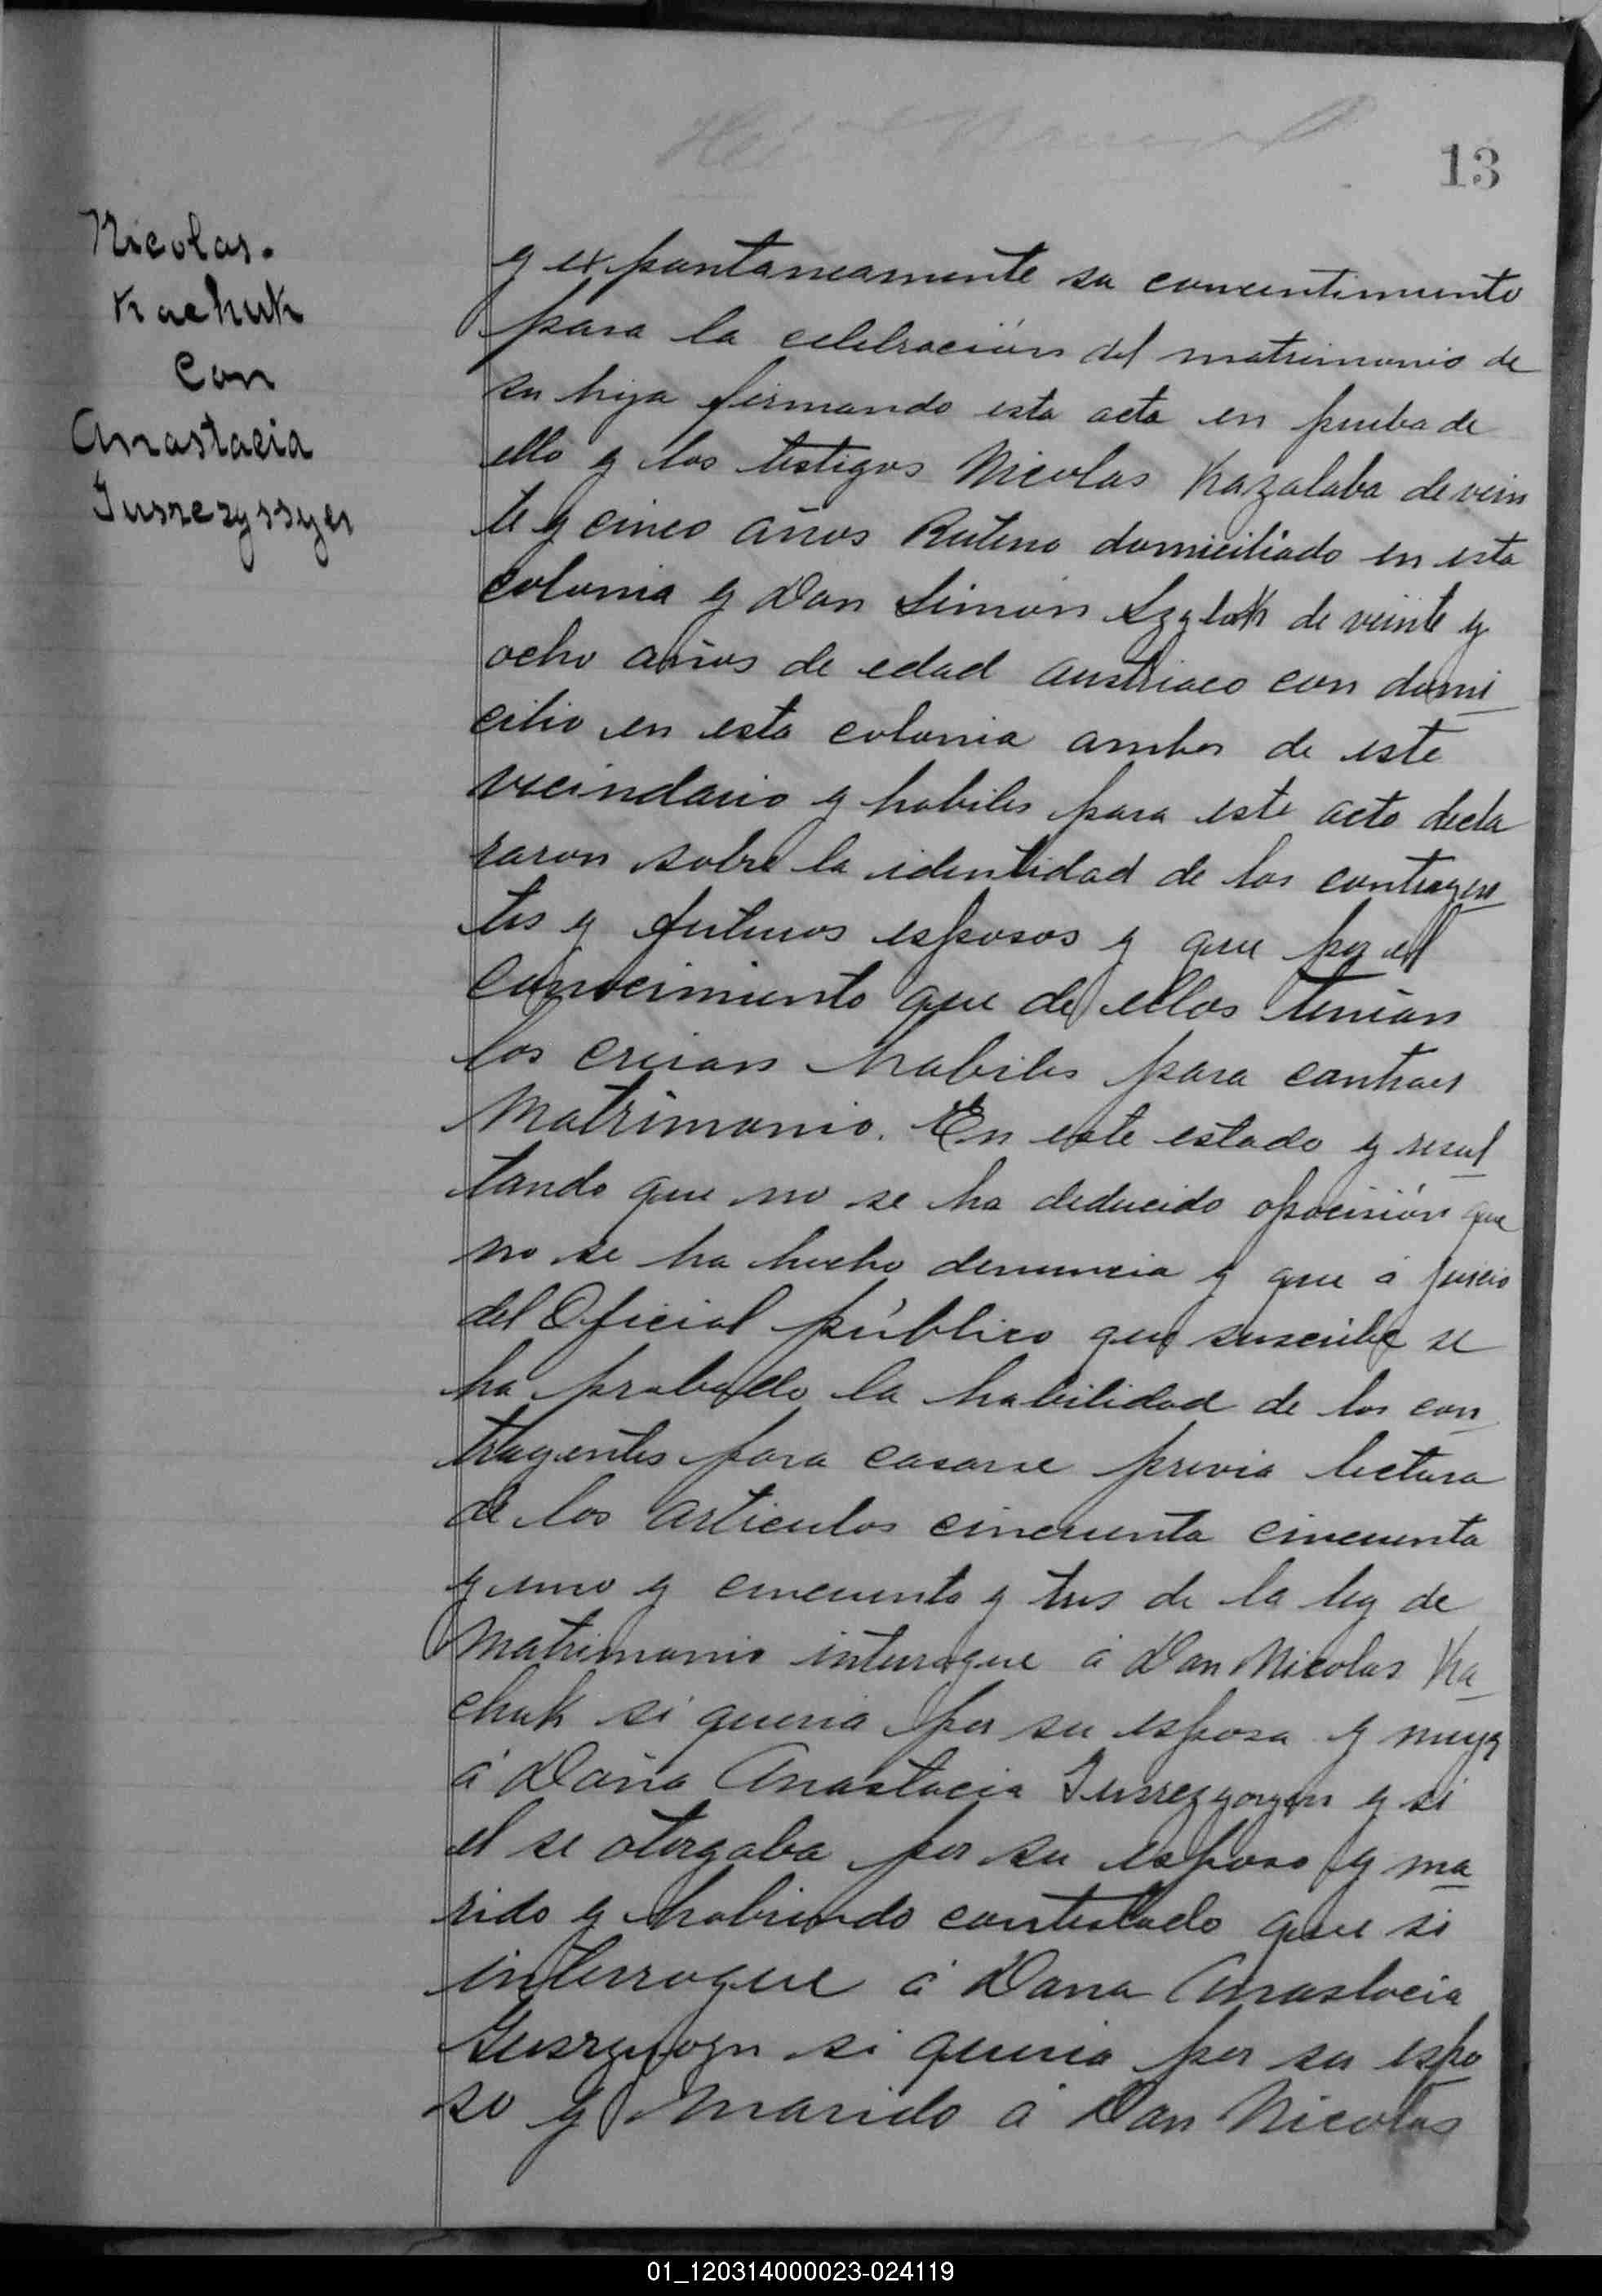 13
Nicolas.
Kachuk
Con
Anastacia
y expontaneamente su concentimiento
para la celebración del matrimonio de
su hija firmando esta acta en prueba de
ello y los testigos Nicolas Kazalaba de vein
te y cinco años Ruteno domiciliado en esta
colonia y Don Simón Szylak de veinte y
ocho años de edad austriaco con domi
cilio en esta colonia ambos de este
vecindario y habiles para este acto decla
raron sobre la identidad de los contrayen
tes y futuros esposos y que por el
conocimiento que de ellos tenian
los creian habiles para contraer
Matrimonio. En este estado y resul
tando que no se ha deducido oposición que
no se ha hecho denuncia y que á juicio
del Oficial público que suscribe se
ha probado la habilidad de los con
trayentes para casarse previa lectura
de los articulos cincuenta cincuenta
y uno y cincuenta y tres de la ley de
Matrimonio interrogue á Don Nicolas Ka
chuk si queria por su esposa y muger
á Doña Anastacia y si
el se otorgaba por su esposo y ma
rido y habiendo contestado que si
interrogue á Dona Anastacia
si queria por su espo
so y Marido á Don Nicolas
01_120314000023-024119